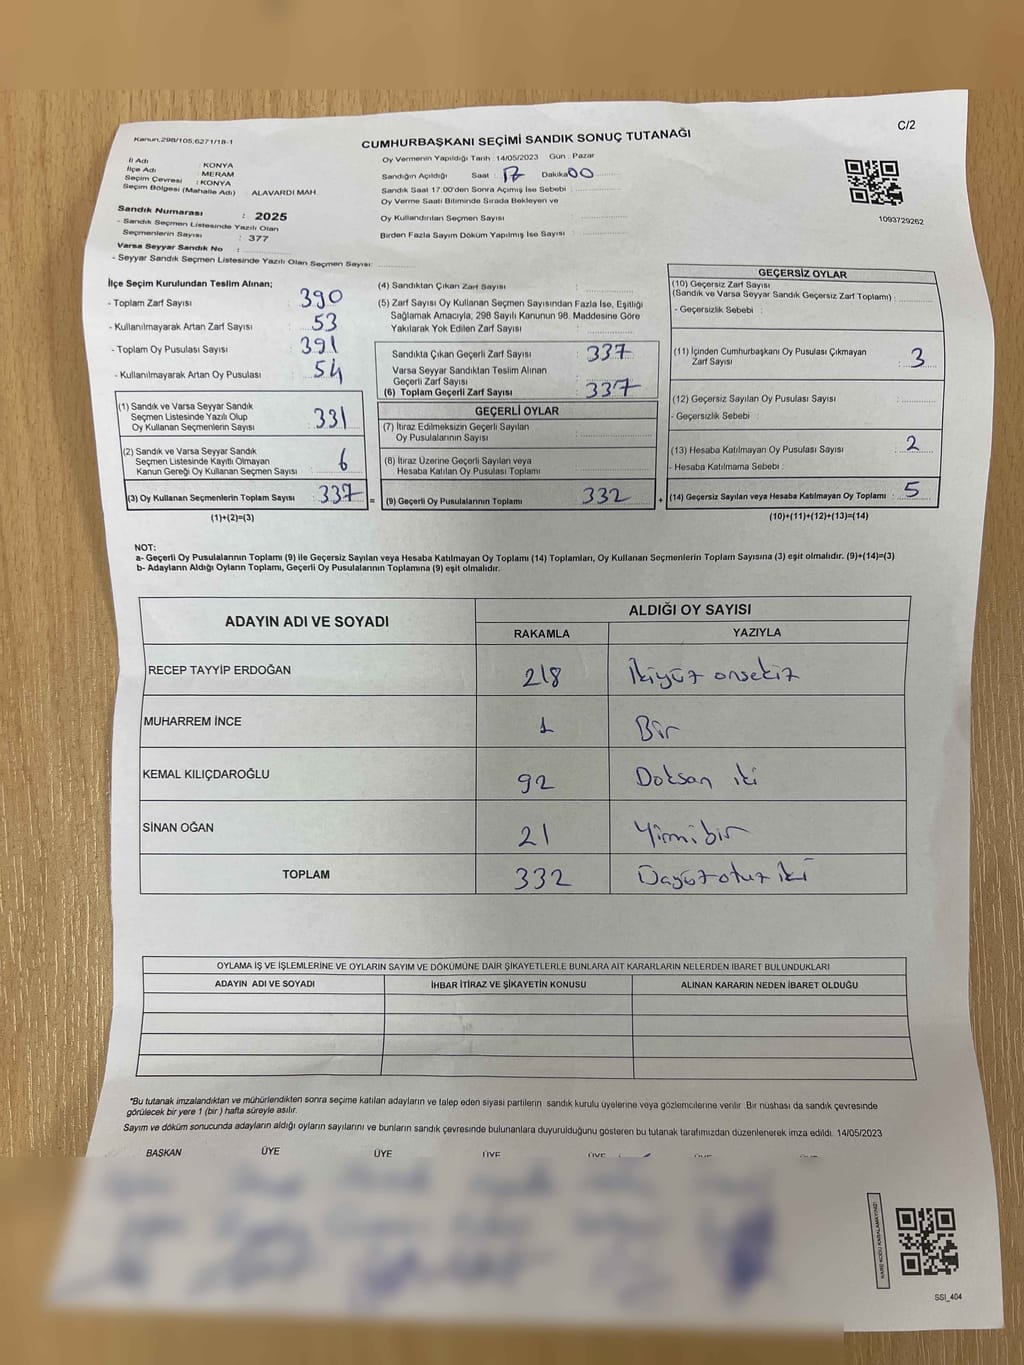 Kanun.298/105,6271/18-1
CUMHURBAŞKANI SEÇİMİ SANDIK SONUÇ TUTANAĞI
C/2
İl Adı : KONYA
İlçe Adı : MERAM
Seçim Çevresi : KONYA
Seçim Bölgesi (Mahalle Adı) : ALAVARDI MAH.
Sandık Numarası : 2025
- Sandık Seçmen Listesinde Yazılı Olan
Seçmenlerin Sayısı : 377
Varsa Seyyar Sandık No :
- Seyyar Sandık Seçmen Listesinde Yazılı Olan Seçmen Sayısı:
Oy Vermenin Yapıldığı Tarih : 14/05/2023 Gün : Pazar
Sandığın Açıldığı Saat : 17 Dakika 00
Sandık Saat 17:00'den Sonra Açımış İse Sebebi :
Oy Verme Saati Bitiminde Sırada Bekleyen ve
Oy Kullandırılan Seçmen Sayısı :
Birden Fazla Sayım Döküm Yapılmış İse Sayısı :
1093729262
İlçe Seçim Kurulundan Teslim Alınan;
- Toplam Zarf Sayısı : 390
- Kullanılmayarak Artan Zarf Sayısı : 53
- Toplam Oy Pusulası Sayısı : 391
- Kullanılmayarak Artan Oy Pusulası : 54
(1) Sandık ve Varsa Seyyar Sandık
Seçmen Listesinde Yazılı Olup
Oy Kullanan Seçmenlerin Sayısı : 331
(2) Sandık ve Varsa Seyyar Sandık
Seçmen Listesinde Kayıtlı Olmayan
Kanun Gereği Oy Kullanan Seçmen Sayısı : 6
(3) Oy Kullanan Seçmenlerin Toplam Sayısı : 337 =
(1)+(2)=(3)
(4) Sandıktan Çıkan Zarf Sayısı :
(5) Zarf Sayısı Oy Kullanan Seçmen Sayısından Fazla İse, Eşitliği
Sağlamak Amacıyla, 298 Sayılı Kanunun 98. Maddesine Göre
Yakılarak Yok Edilen Zarf Sayısı :
Sandıkta Çıkan Geçerli Zarf Sayısı : 337
Varsa Seyyar Sandıktan Teslim Alınan
Geçerli Zarf Sayısı :
(6) Toplam Geçerli Zarf Sayısı : 337
GEÇERLİ OYLAR
(7) İtiraz Edilmeksizin Geçerli Sayılan
Oy Pusulalarının Sayısı :
(8) İtiraz Üzerine Geçerli Sayılan veya
Hesaba Katılan Oy Pusulası Toplamı :
(9) Geçerli Oy Pusulalarının Toplamı : 332 +
GEÇERSİZ OYLAR
(10) Geçersiz Zarf Sayısı
(Sandık ve Varsa Seyyar Sandık Geçersiz Zarf Toplamı) :
- Geçersizlik Sebebi :
(11) İçinden Cumhurbaşkanı Oy Pusulası Çıkmayan
Zarf Sayısı : 3
(12) Geçersiz Sayılan Oy Pusulası Sayısı :
- Geçersizlik Sebebi :
(13) Hesaba Katılmayan Oy Pusulası Sayısı : 2
- Hesaba Katılmama Sebebi :
(14) Geçersiz Sayılan veya Hesaba Katılmayan Oy Toplamı : 5
(10)+(11)+(12)+(13)=(14)
NOT:
a- Geçerli Oy Pusulalarının Toplamı (9) ile Geçersiz Sayılan veya Hesaba Katılmayan Oy Toplamı (14) Toplamları, Oy Kullanan Seçmenlerin Toplam Sayısına (3) eşit olmalıdır. (9)+(14)=(3)
b- Adayların Aldığı Oyların Toplamı, Geçerli Oy Pusulalarının Toplamına (9) eşit olmalıdır.
ADAYIN ADI VE SOYADI ALDIĞI OY SAYISI
RAKAMLA YAZIYLA
RECEP TAYYİP ERDOĞAN 218 İkiyüz onsekiz
MUHARREM İNCE 1 Bir
KEMAL KILIÇDAROĞLU 92 Doksan iki
SİNAN OĞAN 21 Yirmibir
TOPLAM 332 Üçyüzotuz iki
OYLAMA İŞ VE İŞLEMLERİNE VE OYLARIN SAYIM VE DÖKÜMÜNE DAİR ŞİKAYETLERLE BUNLARA AİT KARARLARIN NELERDEN İBARET BULUNDUKLARI
ADAYIN ADI VE SOYADI İHBAR İTİRAZ VE ŞİKAYETİN KONUSU ALINAN KARARIN NEDEN İBARET OLDUĞU
*Bu tutanak imzalandıktan ve mühürlendikten sonra seçime katılan adayların ve talep eden siyasi partilerin sandık kurulu üyelerine veya gözlemcilerine verilir. Bir nüshası da sandık çevresinde
görülecek bir yere 1 (bir ) hafta süreyle asılır.
Sayım ve döküm sonucunda adayların aldığı oyların sayılarını ve bunların sandık çevresinde bulunanlara duyurulduğunu gösteren bu tutanak tarafımızdan düzenlenerek imza edildi. 14/05/2023
BAŞKAN ÜYE ÜYE ÜYE ÜYE
KARE KODU KARALAMAYINIZ!
SSI_404